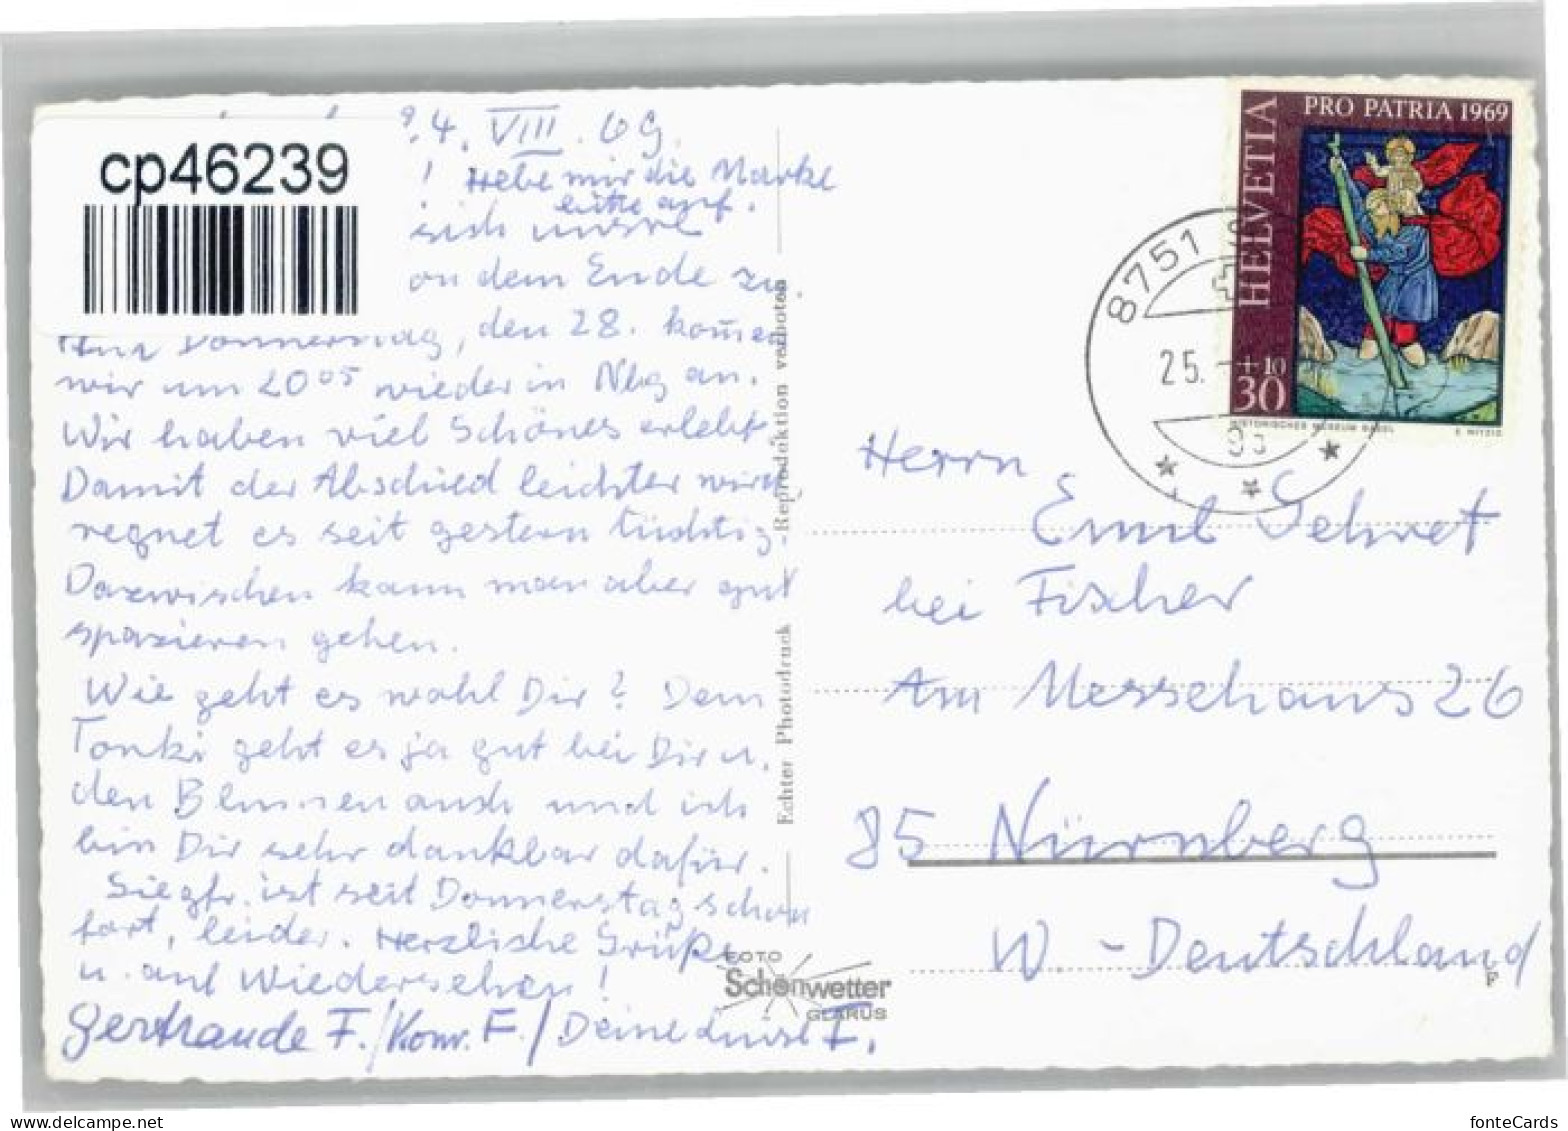 24. VIII. 69.
cp46239
! Hebe mir die Marke
bitte auf.
sich unsre
dem Ende zu.
Am Donnerstag, den 28. kom̄en
wir um 20⁰⁵ wieder in Nbg an.
Wir haben viel Schönes erlebt
Damit der Abschied leichter wird
regnet es seit gestern tüchtig.
Dazwischen kann man aber gut
spazieren gehen.
Wie geht es wohl Dir? Dem
geht es ja gut bei Dir u.
den Blumen auch und ich
bin Dir sehr dankbar dafür.
Siegfr. ist seit Donnerstag schon
fort, leider. Herzliche Grüße
u. auf Wiedersehen!
Gertraude F./Konr. F./Deine Luise F.
Echter Photodruck - Reproduktion verboten
FOTO
Schönwetter
GLARUS
HELVETIA
PRO PATRIA 1969
+10
30
HISTORISCHES MUSEUM BASEL
E. MITZIG
8751
25.
Herrn
Emil Gehret
bei Fischer
Am Messehaus 26
85 Nürnberg
W.-Deutschland
F
delcampe.net
fonteCards